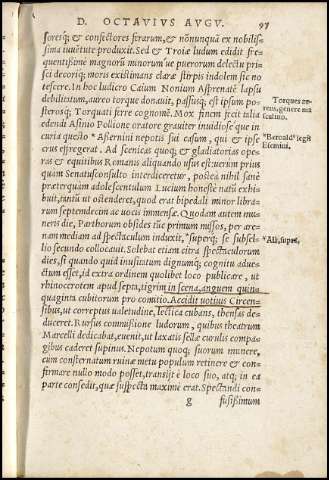 D. OCTAVIUS AUGU. 97
sores[que], & confectores ferarum, & nõnunquã ex nobilis-
sima iuuẽtute produxit. Sed & Troiæ ludum edidit fre-
quentissime magnorũ minorum'ue puerorum delectu pri-
sci decoriq; moris existimans claræ stirpis indolem sic no
tescere. In hoc ludicro Caium Nonium Asprenatẽ lapsu
debilitatum, aureo torque donauit, passusq; est ipsum pos-
terosq; Torquati ferre cognomẽ. Mox finem fecit talia
edendi Asinio Pollione oratore grauiter inuidiose'que in
curia questo *Aesernini nepotis sui casum, qui & ipse
crus effregerat. Ad scenicas quoq; & gladiatorias ope-
ras & equitibus Romanis aliquando usus est: uerùm prius
quam Senatusconsulto interdiceretur, posteà nihil sanè
præterquàm adolescentulum Lucium honestè natũ exhi-
buit, tantũ ut ostenderet, quod erat bipedali minor libra-
rum septemdecim ac uocis immensæ. Quodam autem mu-
neris die, Parthorum obsides tũc primum missos, per are-
nam mediam ad spectaculum induxit, *superq; se subsel-
lio secundo collocauit. Solebat etiam citra spectaculorum
dies, si quando quid inusitatum dignumq; cognitu aduec-
tum esset, id extra ordinem quolibet loco publicare, ut
rhinocerotem apud septa, tigrim in scena, anguem quin-
quaginta cubitorum pro comitio. Accidit uotiuis Circen-
sibus, ut correptus ualetudine, lectica cubans, thensas de-
duceret. Rursus commissione ludorum, quibus theatrum
Marcelli dedicabat, euenit, ut laxatis sellæ curulis compa-
gibus caderet supinus. Nepotum quoq; suorum munere,
cum consternatum ruinæ metu populum retinere & con-
firmare nullo modo posset, transijt è loco suo, atq; in ea
parte consedit, quæ suspecta maximè erat. Spectandi con-
g fusissimum
Torques ae-
reus, genere ma
sculino.
*Beroald⁹ legit
Eserninus.
*Aliâ, supra,